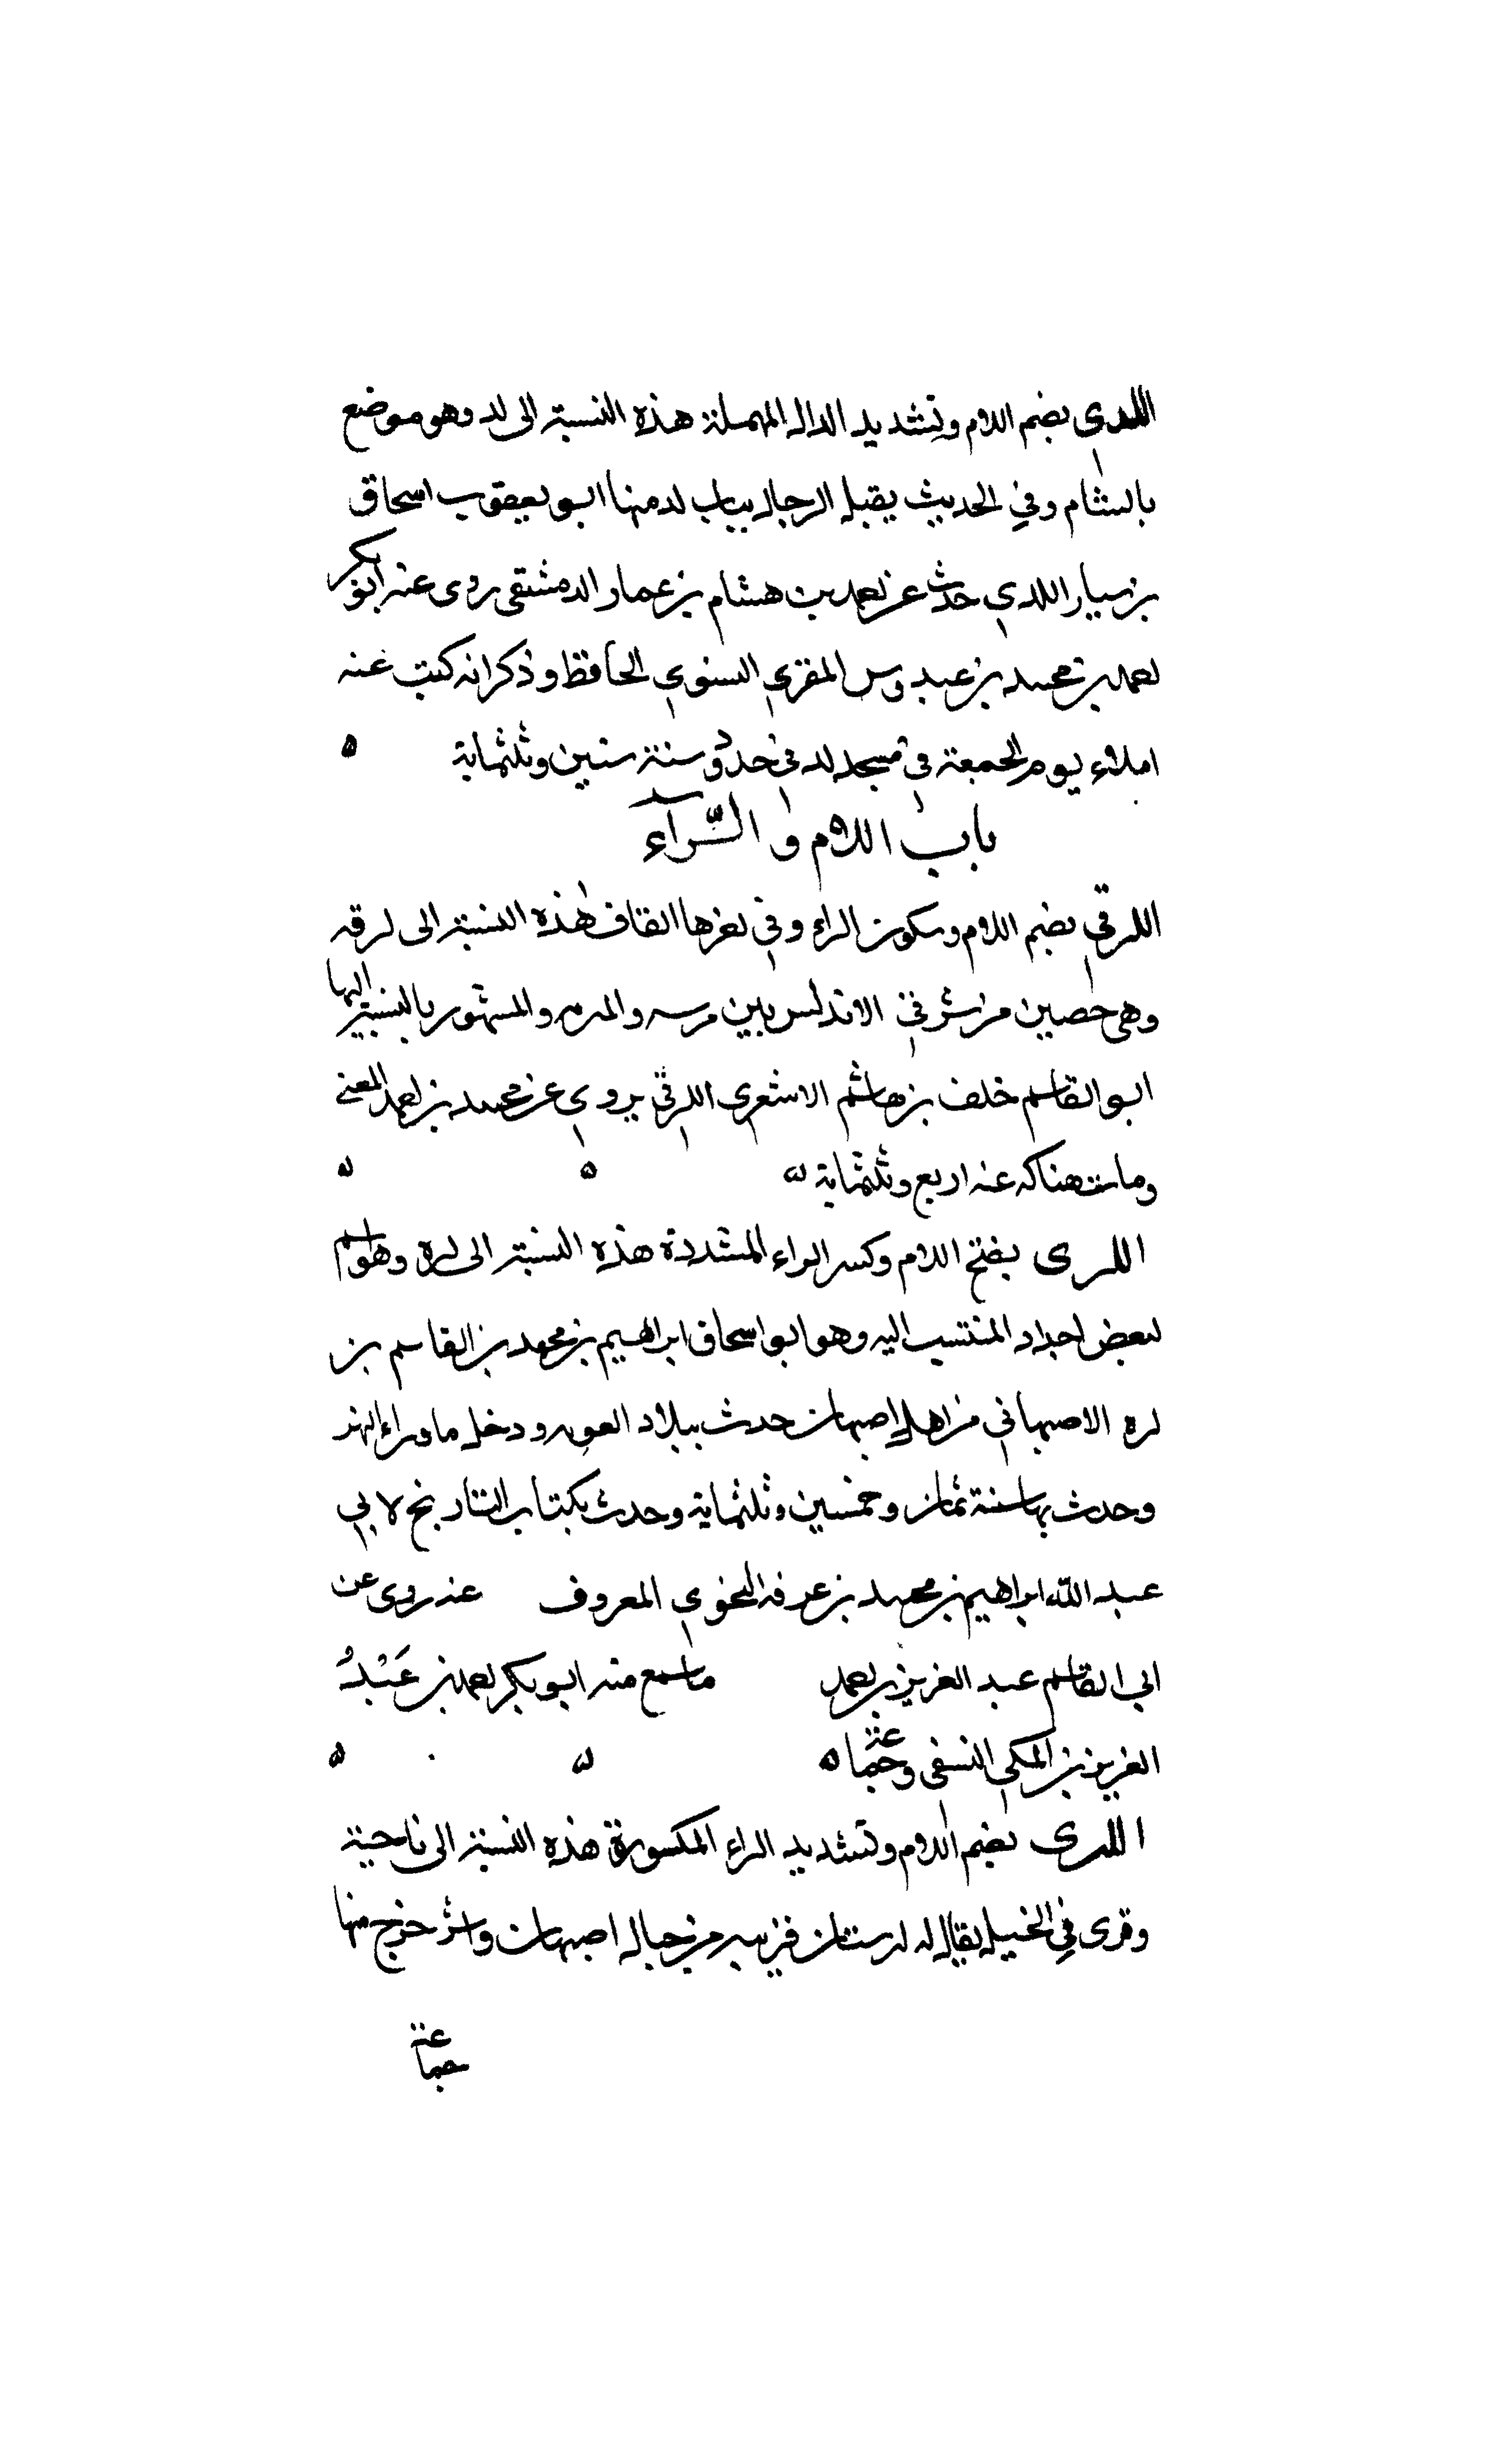 اللدى بضم اللام وتشديد الدال المهملة هذه النسبة الى لد وهو موضع
بالشام وفي الحديث يقتله الرجال بباب لد منها ابو يعقوب اسحاق
بن سيار اللدي حدث عن احمد بن هشام بن عمار الدمشقى روى عنه ابو بكر
احمد بن محمد بن عبدوس المقرى النسوي الحافظ وذكر انه كتب عنه
املاء يوم الجمعة فى مسجد لد فى حدود سنة ستين وثلثماية
باب اللام والرآء
اللرقى بضم اللام وسكون الراء وفى اخرها القاف هذه النسبة الى لرقه
وهى حصين من شرقى الاندلس بين مرسه والمريه والمشهور بالنسبة اليها
ابو القاسم خلف بن هاشم الاشعرى اللرقى يروى عن محمد بن احمد العتبى
ومات هناك سنة اربع وثلثماية
اللرى بفتح اللام وكسر الراء المشددة هذه النسبة الى لره وهو اسم
لبعض اجداد المنتسب اليه وهو ابو اسحاق ابراهيم بن محمد بن القاسم بن
لره الاصبهاني من اهل اصبهان حدث ببلاد الغور ودخل ماوراء النهر
وحدث بها سنة ثمان وخمسين وثلثماية وحدث بكتاب التاريخ لابي
عبد الله ابراهيم بن محمد بن عرفه النحوي المعروف عنه روى عن
ابي القاسم عبد العزيز بن احمد ما سمع منه ابو بكر احمد بن عبد
العزيز بن المكي النسفى وجماعة
اللرى بضم اللام وتشديد الراء المكسورة هذه النسبة الى ناحية
وقرى في الجبل يقال له لرستان قريب من جبال اصبهان واشتر خرج منها
جماعة